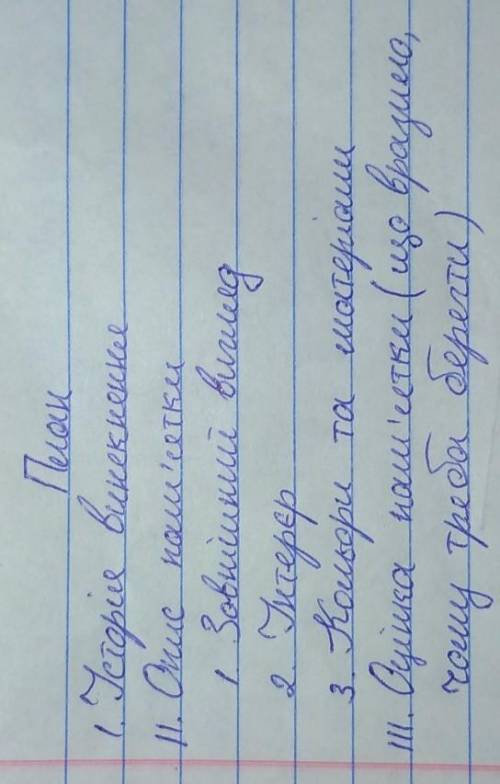 План
I. Історія виникнення
II. Опис пам'ятки
1. Зовнішній вигляд
2. Інтерєр
3. Кольори та матеріали
III. Оцінка пам'ятки (що вразило,
чому треба берегти)